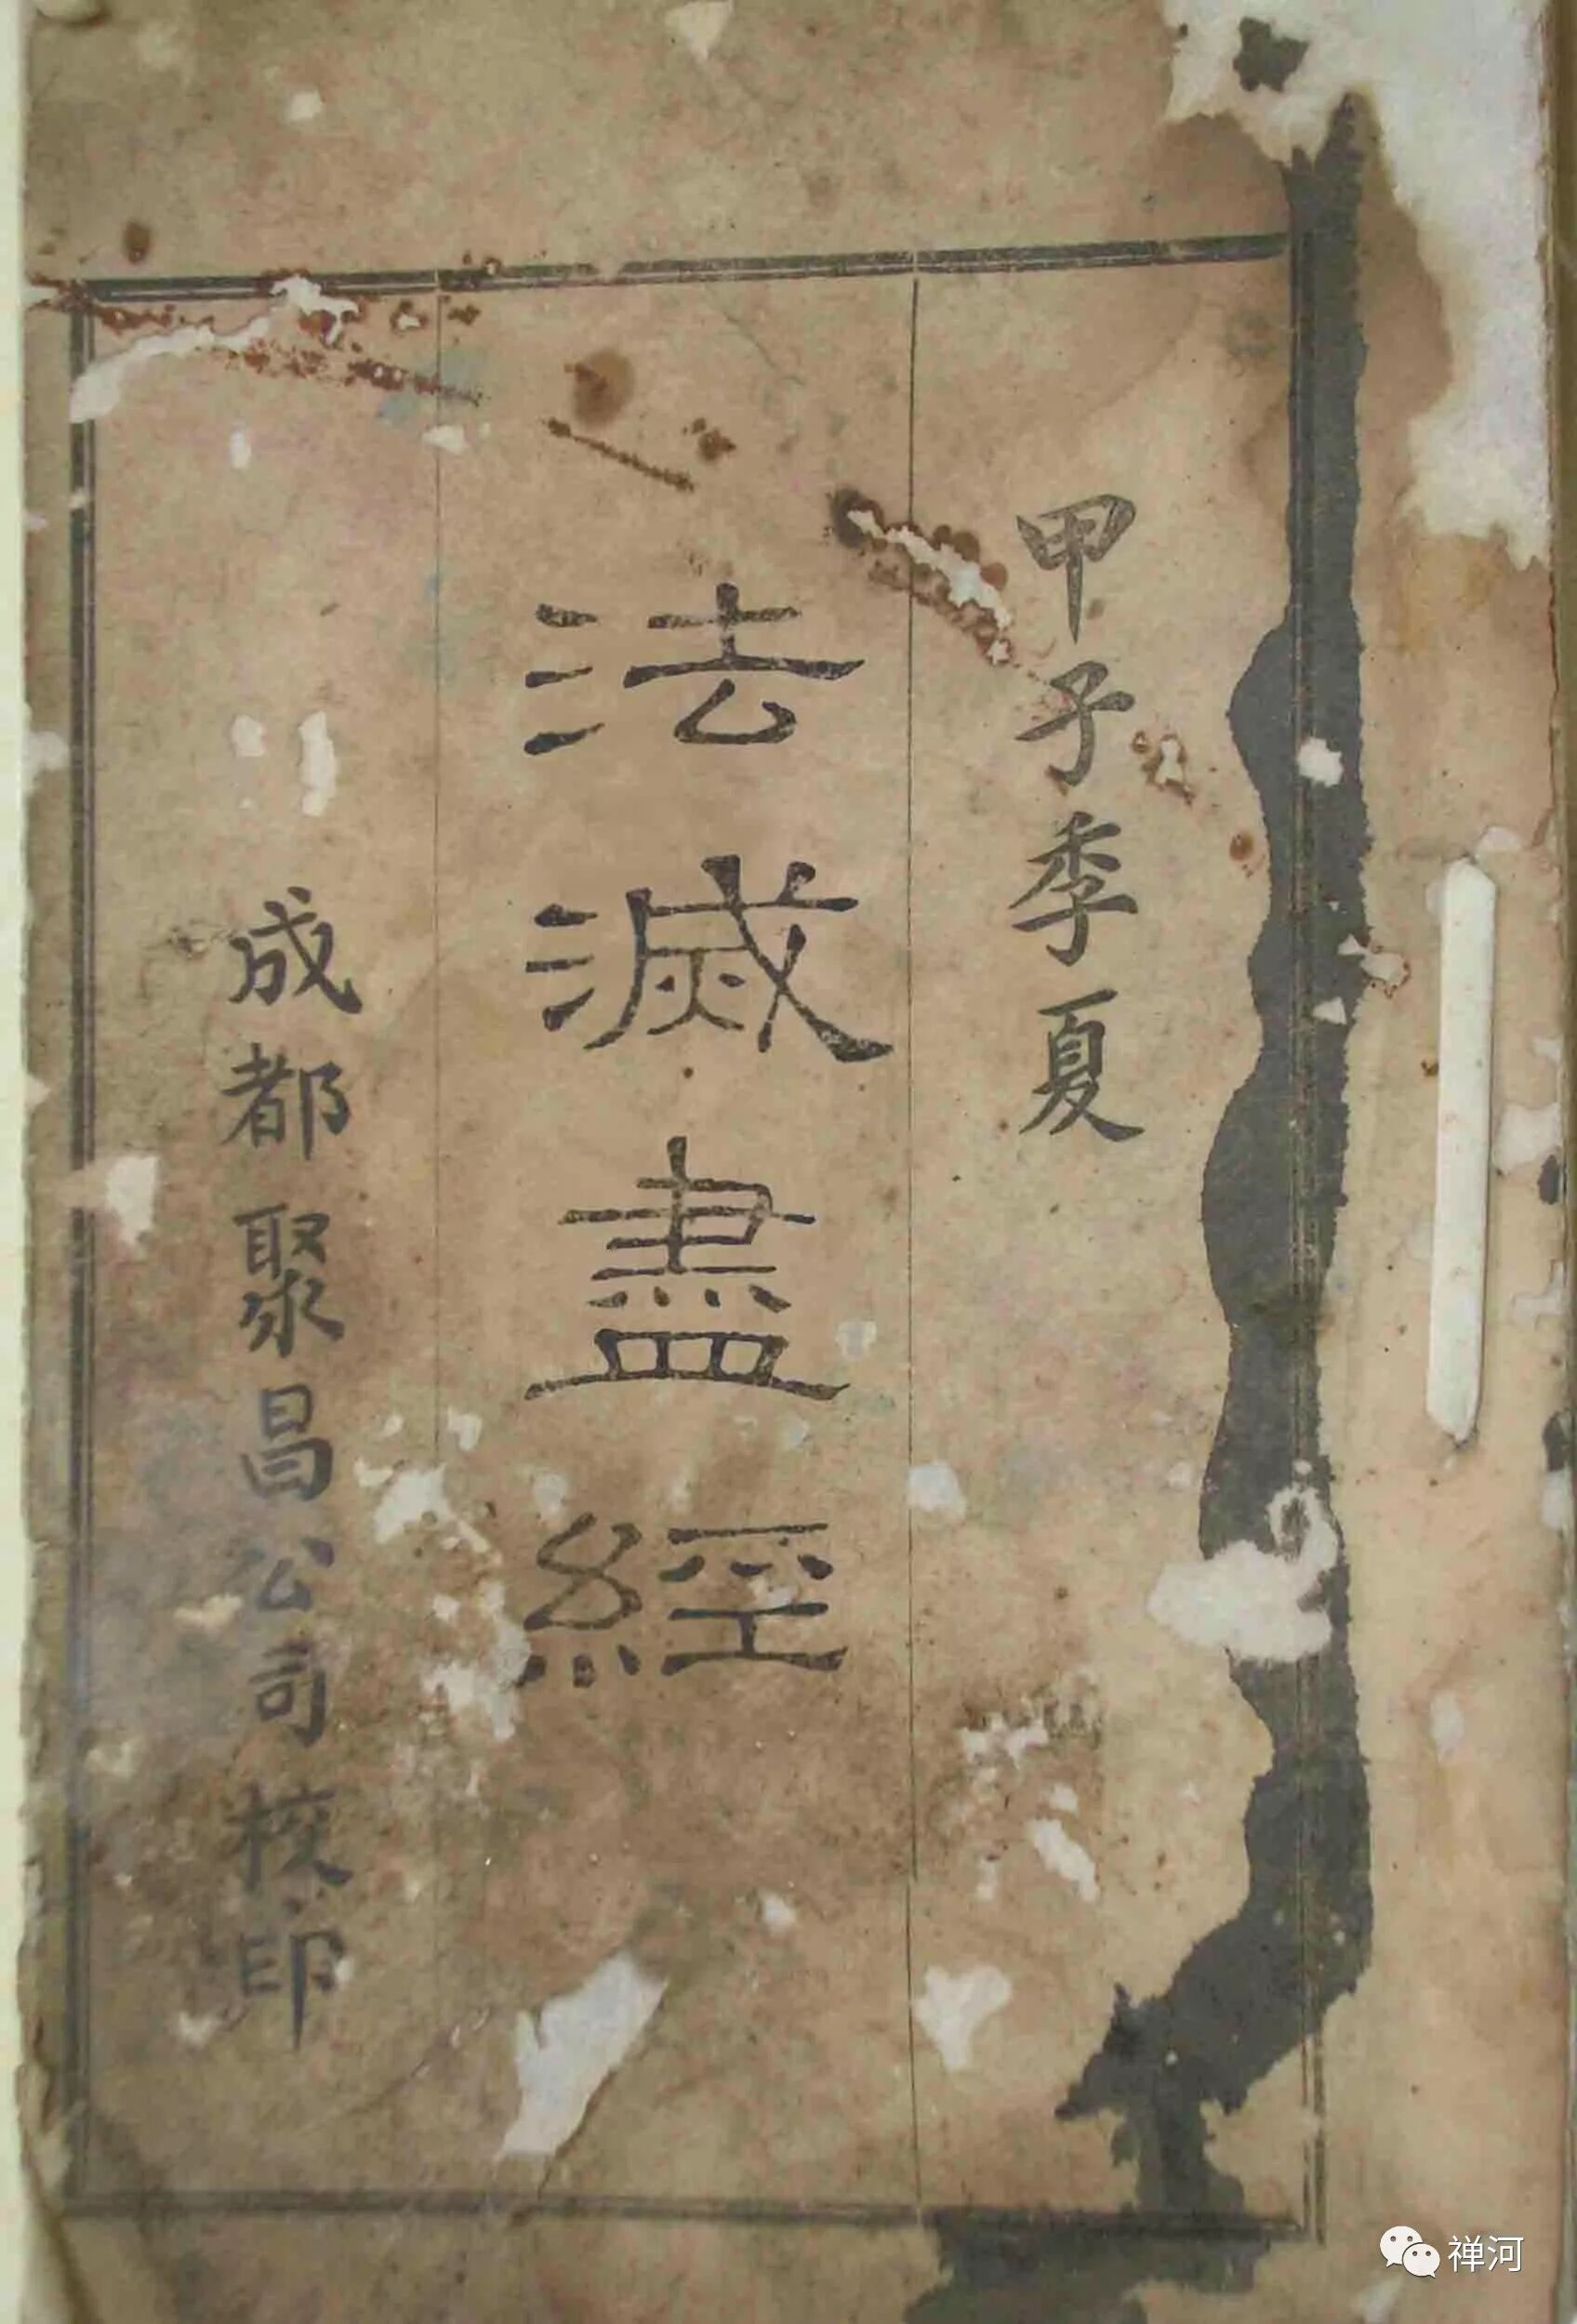 甲子季夏
法滅盡經
成都聚昌公司校印
禅河